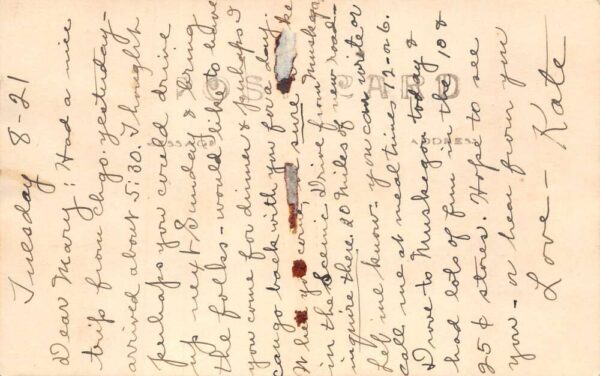 Tuesday 8-21
Dear Mary: Had a nice
trip from Chgo. yesterday -
arrived about 5:30. Thought
perhaps you could drive
up next Sunday & bring
the folks - would like to have
you come for dinner & perhaps I
can go back with you for a day.
When you come be sure
in the Scenic Drive from Muskegon
inquire there. 20 miles of new road -
Let me know - you can write or
call me at meal times 12-6.
Drove to Muskegon today &
had lots of fun in the 10 &
25¢ stores. Hope to see
you - or hear from you
Love - Kate
POST CARD
MESSAGE
ADDRESS